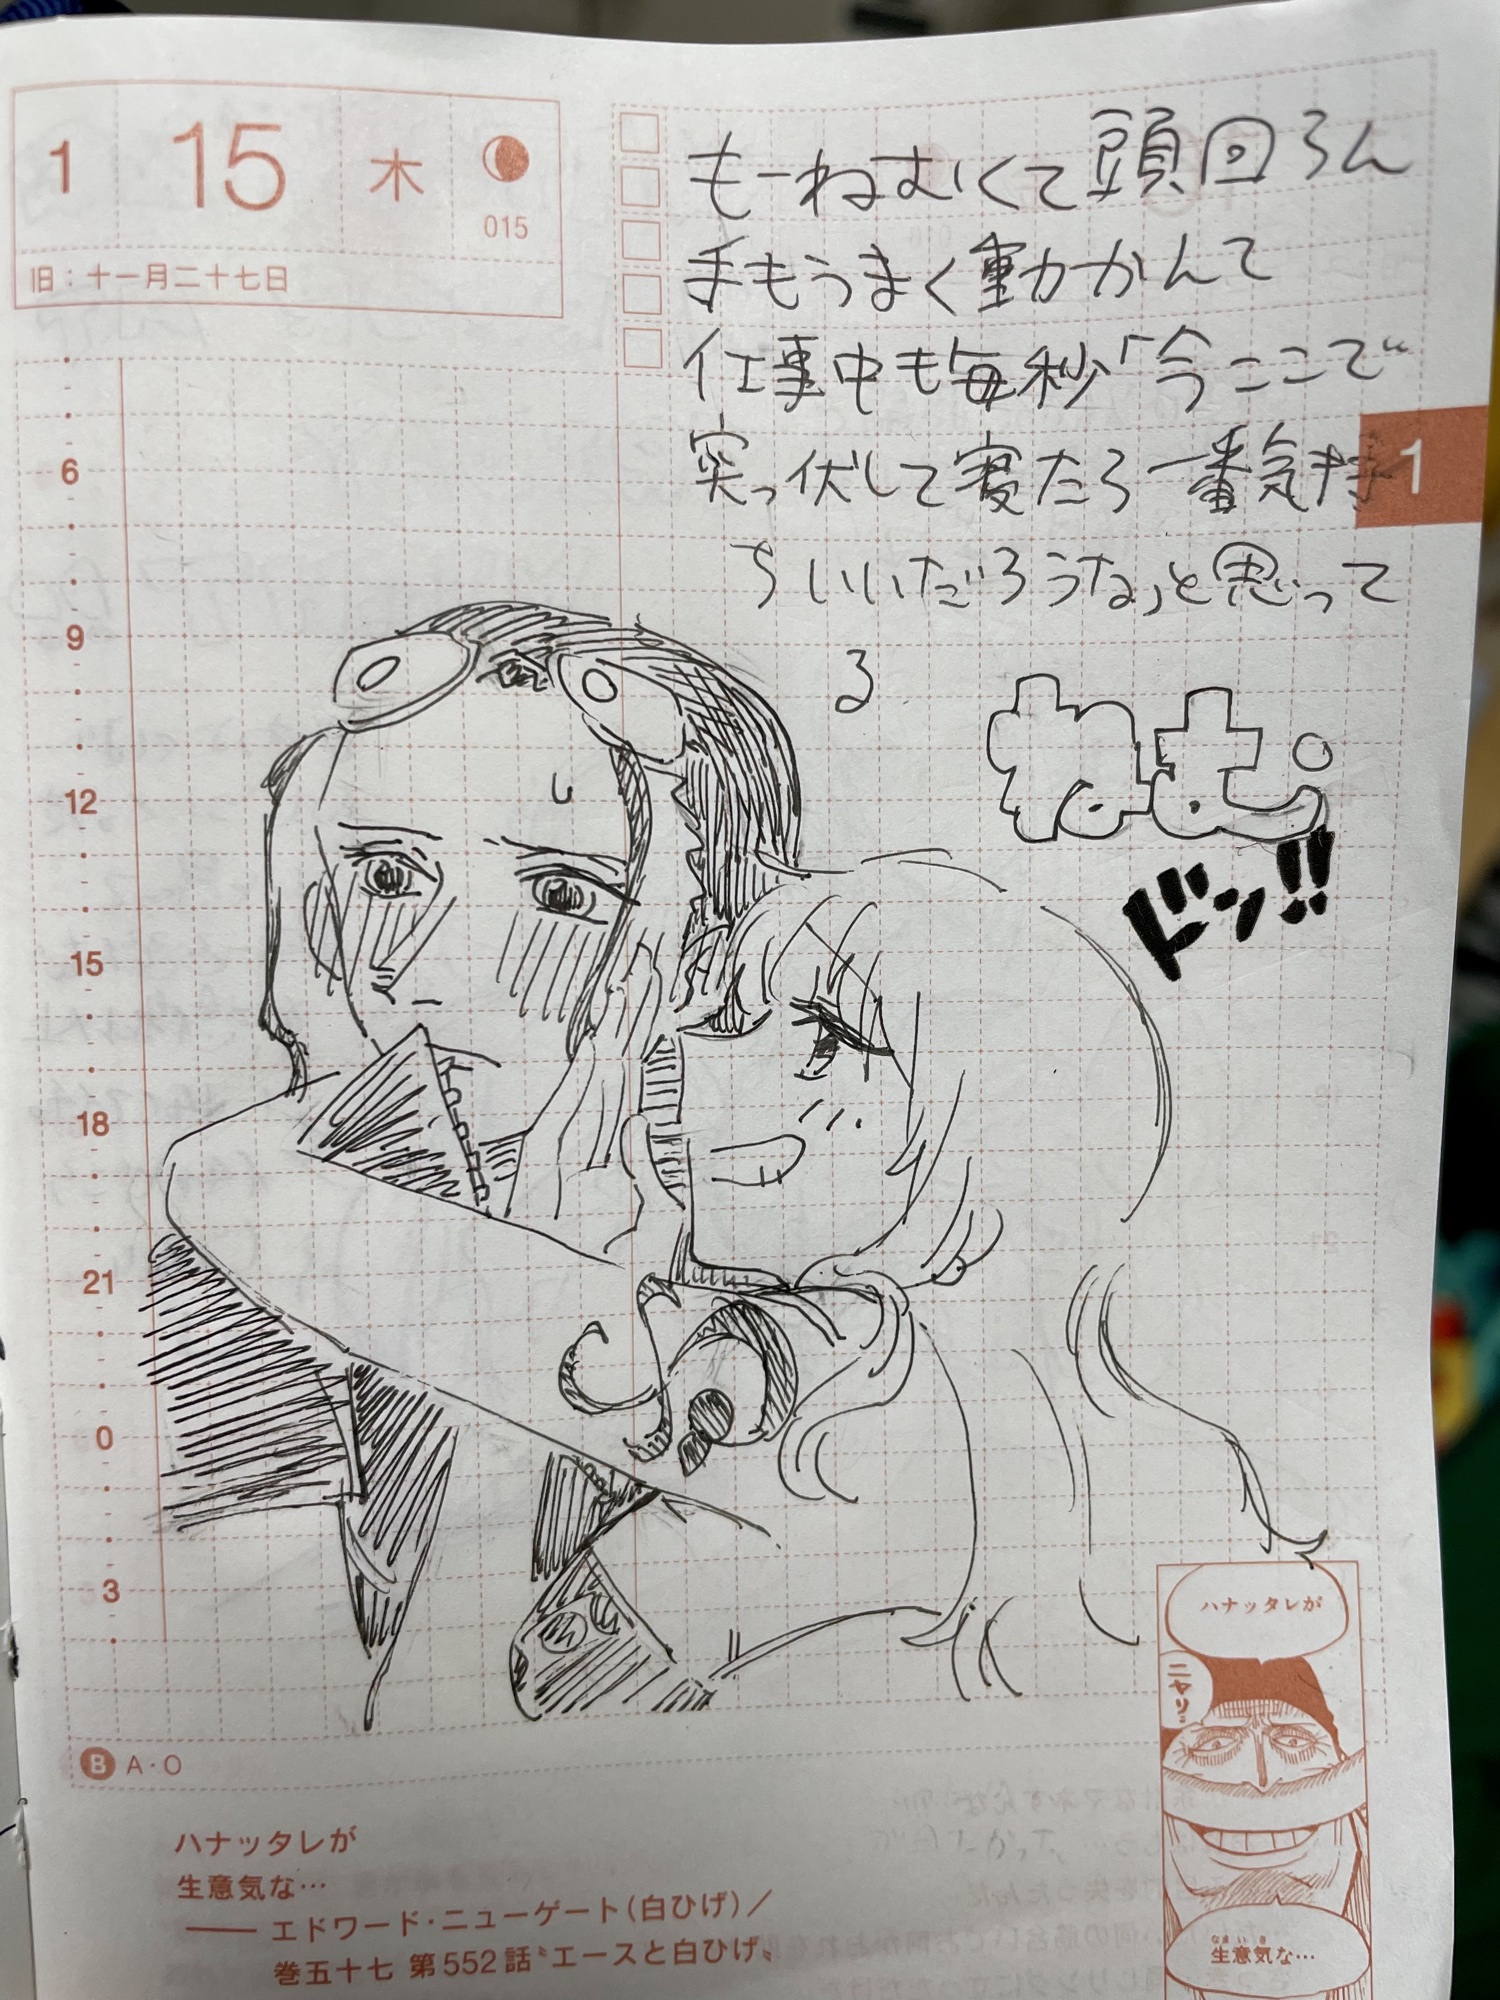 1 15 木
015
旧：十一月二十七日
もーねむくて頭回らん
手もうまく動かんて
仕事中も毎秒「今ここで
突っ伏して寝たら一番気持
ちいいだろうな」と思って
る
ねむい
ドンッ!!
1
6
9
12
15
18
21
0
3
B A・O
ハナッタレが
ニヤリ…
生意気な…
なまいき
ハナッタレが
生意気な…
── エドワード・ニューゲート(白ひげ)／
巻五十七 第552話〝エースと白ひげ〟